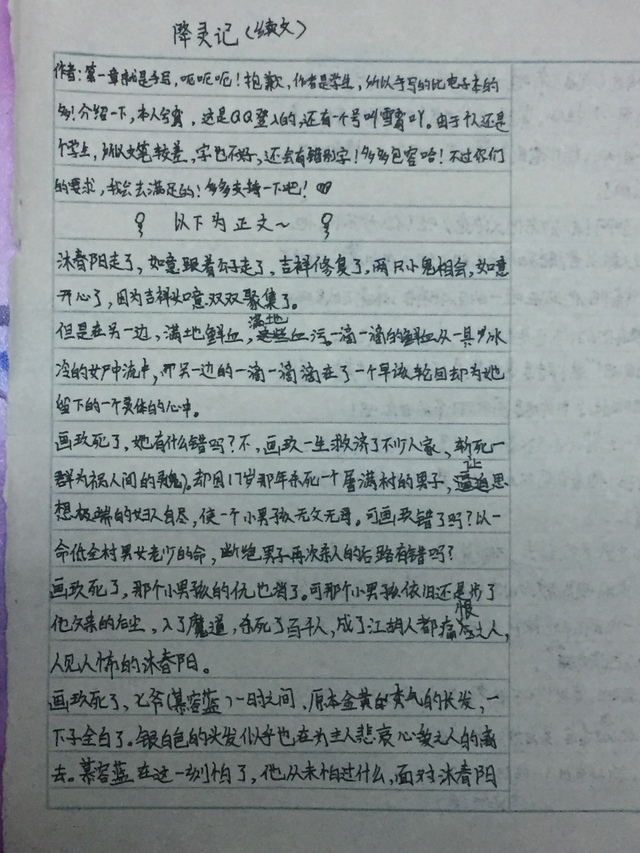 降灵记（续文）
作者：第一章就是手写，呃呃呃！抱歉，作者是学生，所以手写的比电子本的
多！介绍一下，本人今霄，这是QQ登入的，还有一个号叫雪霄吖。由于我还是
个学生，所以文笔较差，字也不好，还会有错别字！多多包容哈！不过你们
的要求，我会去满足的！多多支持一下吧！
以下为正文～
沐春阳走了，如意跟着公子走了，吉祥修复了。两只小鬼相会，如意
开心了，因为吉祥如意双双聚集了。
但是在另一边，满地鲜血，满地血污。一滴一滴的鲜血从一具冰
冷的女尸中流出，那另一边的一滴一滴滴在了一个早该轮回却为她
留下的一个灵体的心中。
画玖死了，她有什么错吗？不，画玖一生救济了不少人家，斩死一
群为祸人间的鬼。却因17岁那年杀死一个屠满村的男子，让思
想极端的妇人自尽，使一个小男孩无父无母。可画玖错了吗？以一
命低全村男女老少的命，断绝男子再次杀人的后路有错吗？
画玖死了，那个小男孩的仇也报了。可那个小男孩依旧还是步了
他父亲的后尘，入了魔道，杀死了百千人，成了江湖人都痛恨之人，
人见人怖的沐春阳。
画玖死了，七爷（慕容蓝）一日之间，原本金黄的秀气的长发，一
下子全白了。银白色的头发似乎也在为主人悲哀心爱之人的离
去。慕容蓝在这一刻怕了，他从未怕过什么，面对沐春阳